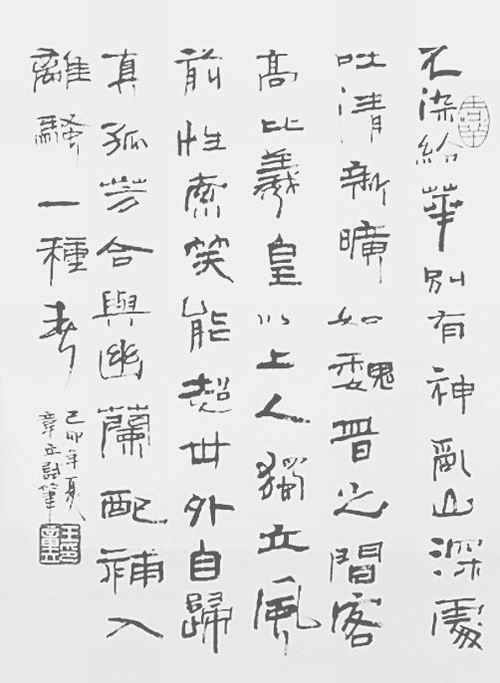 不染給華別有神亂山深處
吐清新曠如魏晉之間客
高比羲皇以上人獨立風
前性索笑能超世外自歸
真孤芳合與幽蘭配補入
離騷一種春
己卯年夏
章 筆